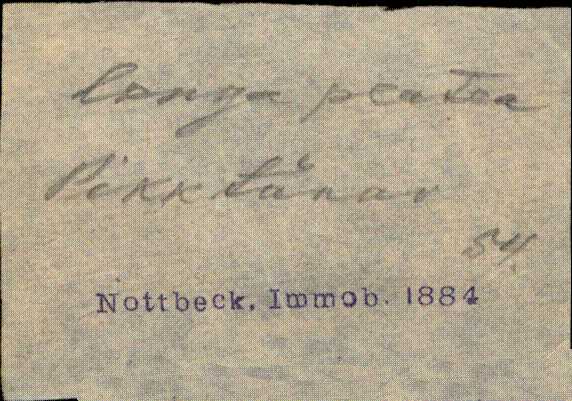 longa platea
Pikk tänav
54.
Nottbeck. Immob. 1884